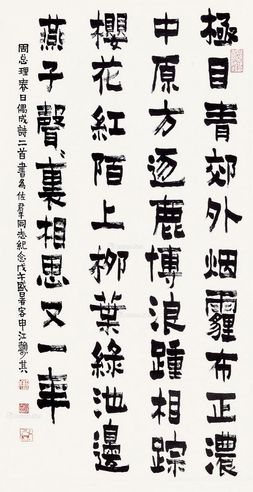 極目青郊外烟霾布正濃
中原方逐鹿博浪踵相踪
櫻花紅陌上柳葉綠池邊
燕子聲〻裏相思又一年
周总理春日偶成詩二首書為佐群同志紀念戊午盛暑客申江賴少其